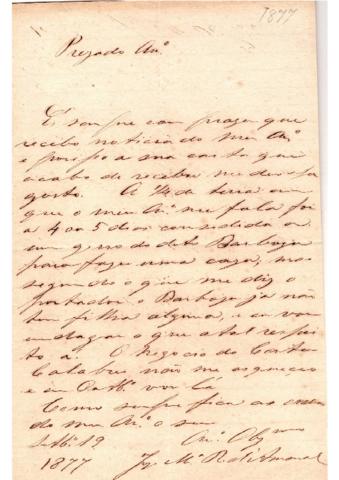 1877
Prezado Amº
É sempre com prazer que
recebo noticia do meu Amº
e por isso a sua carta que
acabo de receber me deu
gosto. A 1/4 de terra em
que o meu Amº me fala foi
a 4 ou 5 dias concedida a
um genro do dito Barboza
para fazer uma caza, mas
segundo o que me diz o
portador o Barboza já não
tem filha alguma, e eu vou
indagar o que a tal respei
to á. O negocio do
não me esqueceu
e em vou lá
Como sempre fica as ordens
do meu Amº o seu
19
1877
Amº Obgº
Mª